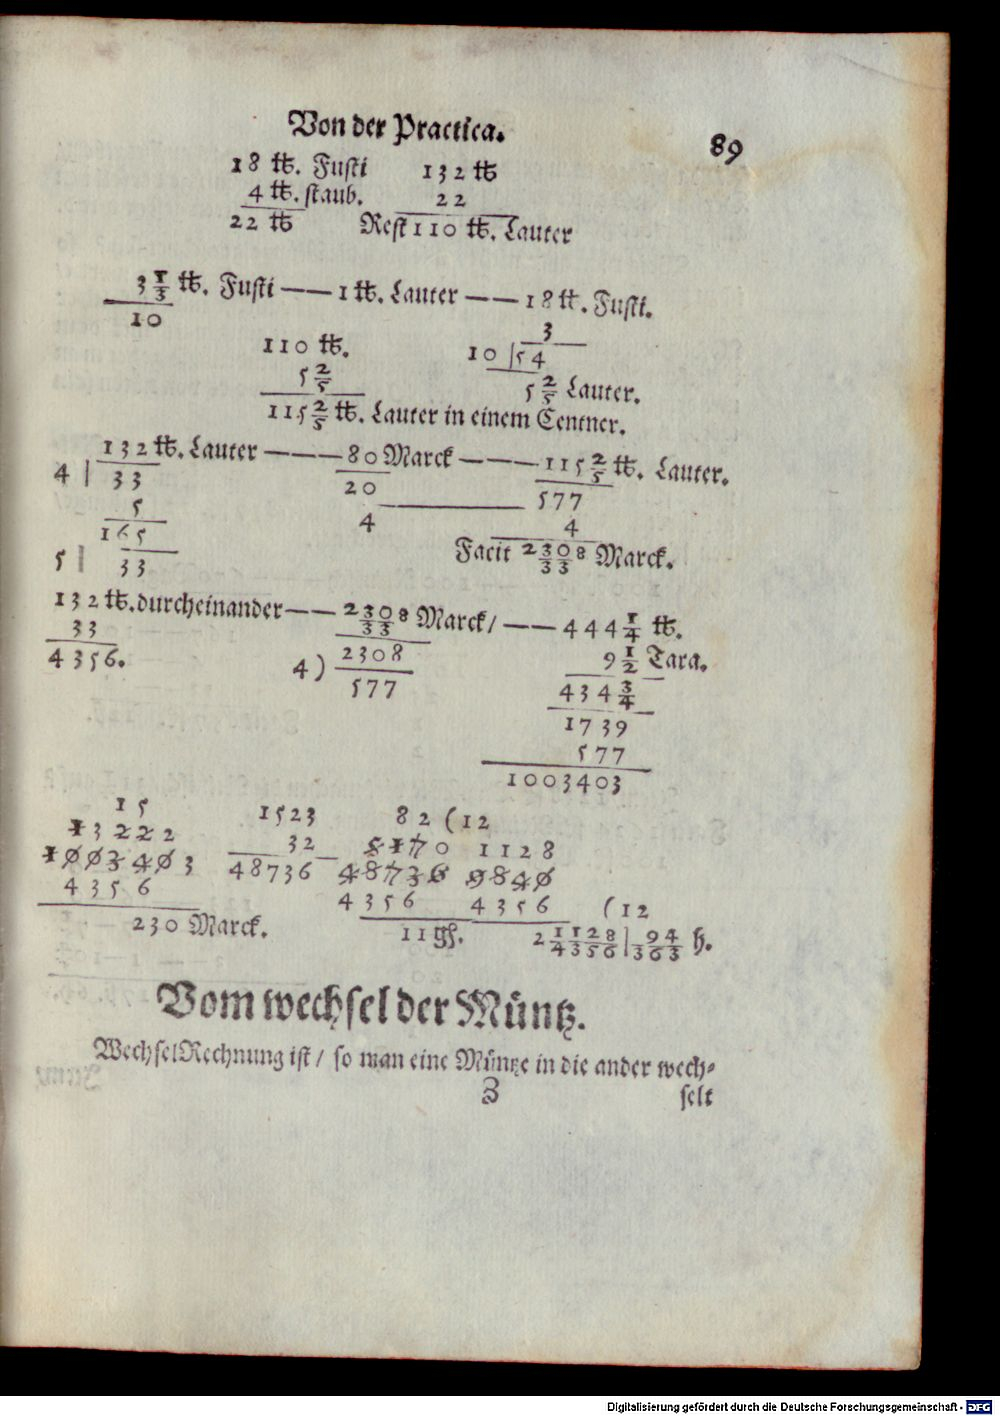 Von der Practica.
89
18 ℔. Fusti 132 ℔
4 ℔. staub. 22
22 ℔ Rest 110 ℔. Lauter
3 1/3 ℔. Fusti —— 1 ℔. Lauter —— 18 ℔. Fusti.
10 3
110 ℔. 10 | 54
5 2/5 5 2/5 Lauter.
115 2/5 ℔. Lauter in einem Centner.
132 ℔. Lauter ——— 80 Marck ——— 115 2/5 ℔. Lauter.
4 | 33 20 577
5 4 4
165 Facit 2308/33 Marck.
5 | 33
132 ℔. durcheinander —— 2308/33 Marck / —— 444 1/4 ℔.
33 2308 9 1/2 Tara.
4356. 4 ) 577 434 3/4
1739
577
1003403
15 1523 82 (12
13222 32 5170 1128
1003403 48736 48736 9840
4356 4356 4356 (12
230 Marck. 11 ßß. 2 1128/4356 | 94/363 h.
Vom wechsel der Müntz.
Wechsel Rechnung ist / so man eine Müntze in die ander wech-
Z selt
Digitalisierung gefördert durch die Deutsche Forschungsgemeinschaft - DFG